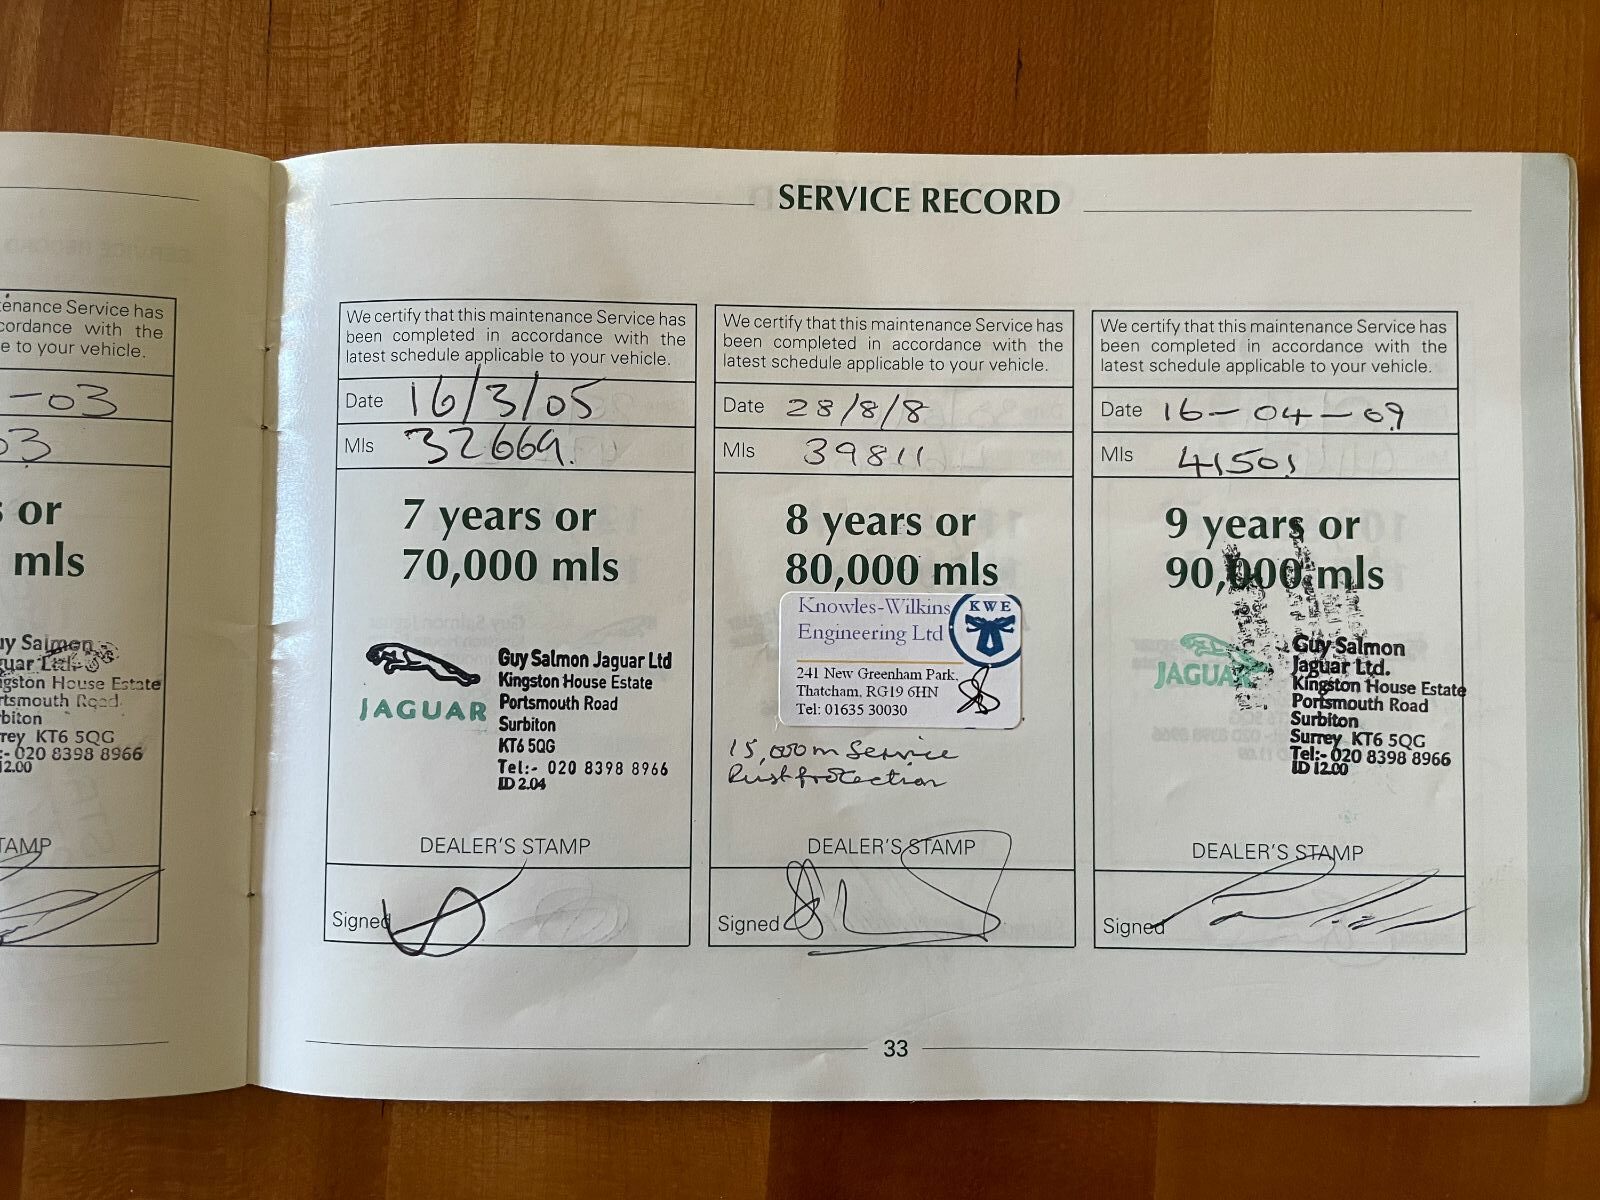 SERVICE RECORD
tenance Service has
cordance with the
e to your vehicle.
-03
03
s or
mls
uy Salmon
uar Ltd.
ngston House Estate
rtsmouth Road
rbiton
rrey KT6 5QG
:- 020 8398 8966
12.00
TAMP
We certify that this maintenance Service has
been completed in accordance with the
latest schedule applicable to your vehicle.
Date 16/3/05
Mls 32669.
7 years or
70,000 mls
JAGUAR
Guy Salmon Jaguar Ltd
Kingston House Estate
Portsmouth Road
Surbiton
KT6 5QG
Tel:- 020 8398 8966
ID 2.04
DEALER'S STAMP
Signed
We certify that this maintenance Service has
been completed in accordance with the
latest schedule applicable to your vehicle.
Date 28/8/8
Mls 39811
8 years or
80,000 mls
Knowles-Wilkins
Engineering Ltd
KWE
241 New Greenham Park,
Thatcham, RG19 6HN
Tel: 01635 30030
15,000m Service
Rust protection
DEALER'S STAMP
Signed
We certify that this maintenance Service has
been completed in accordance with the
latest schedule applicable to your vehicle.
Date 16-04-09
Mls 41501
9 years or
90,000 mls
JAGUAR
Guy Salmon
Jaguar Ltd.
Kingston House Estate
Portsmouth Road
Surbiton
Surrey KT6 5QG
Tel:- 020 8398 8966
ID 12.00
DEALER'S STAMP
Signed
33